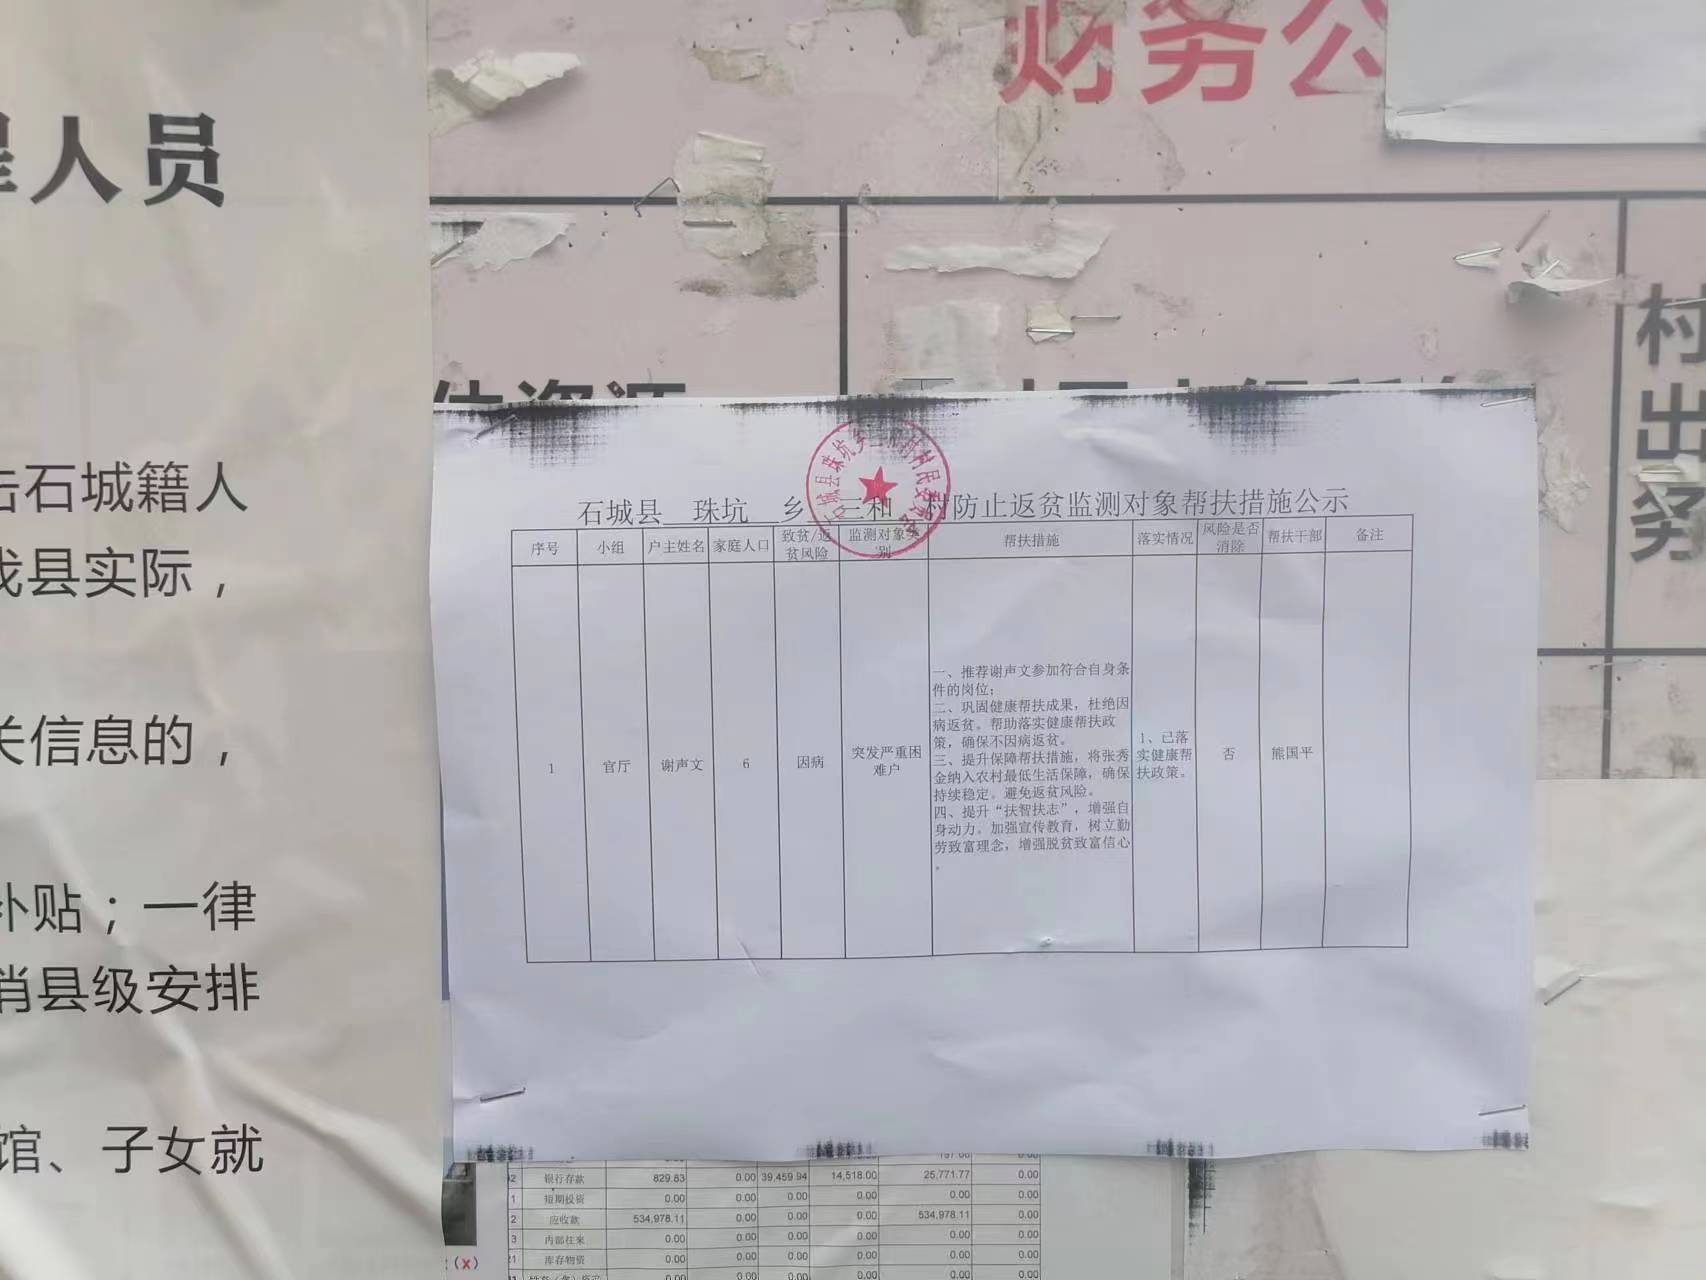 财务公
人员
石城籍人
我县实际，
关信息的，
补贴；一律
消县级安排
馆、子女就
村
出
务
石城县 珠坑 乡 三和 村防止返贫监测对象帮扶措施公示
序号 小组 户主姓名 家庭人口 致贫/返贫风险 监测对象类别 帮扶措施 落实情况 风险是否消除 帮扶干部 备注
1 官厅 谢声文 6 因病 突发严重困难户
一、推荐谢声文参加符合自身条
件的岗位；
二、巩固健康帮扶成果，杜绝因
病返贫。帮助落实健康帮扶政
策，确保不因病返贫。
三、提升保障帮扶措施，将张秀
金纳入农村最低生活保障，确保
持续稳定。避免返贫风险。
四、提升“扶智扶志”，增强自
身动力。加强宣传教育，树立勤
劳致富理念，增强脱贫致富信心
。
1、已落
实健康帮
扶政策。
否 熊国平
银行存款 829.83 0.00 39,459.94 14,518.00 25,771.77 0.00
短期投资 0.00 0.00 0.00 0.00 0.00 0.00
应收款 534,978.11 0.00 0.00 0.00 534,978.11 0.00
内部往来 0.00 0.00 0.00 0.00 0.00 0.00
库存物资 0.00 0.00 0.00 0.00 0.00 0.00
(x)